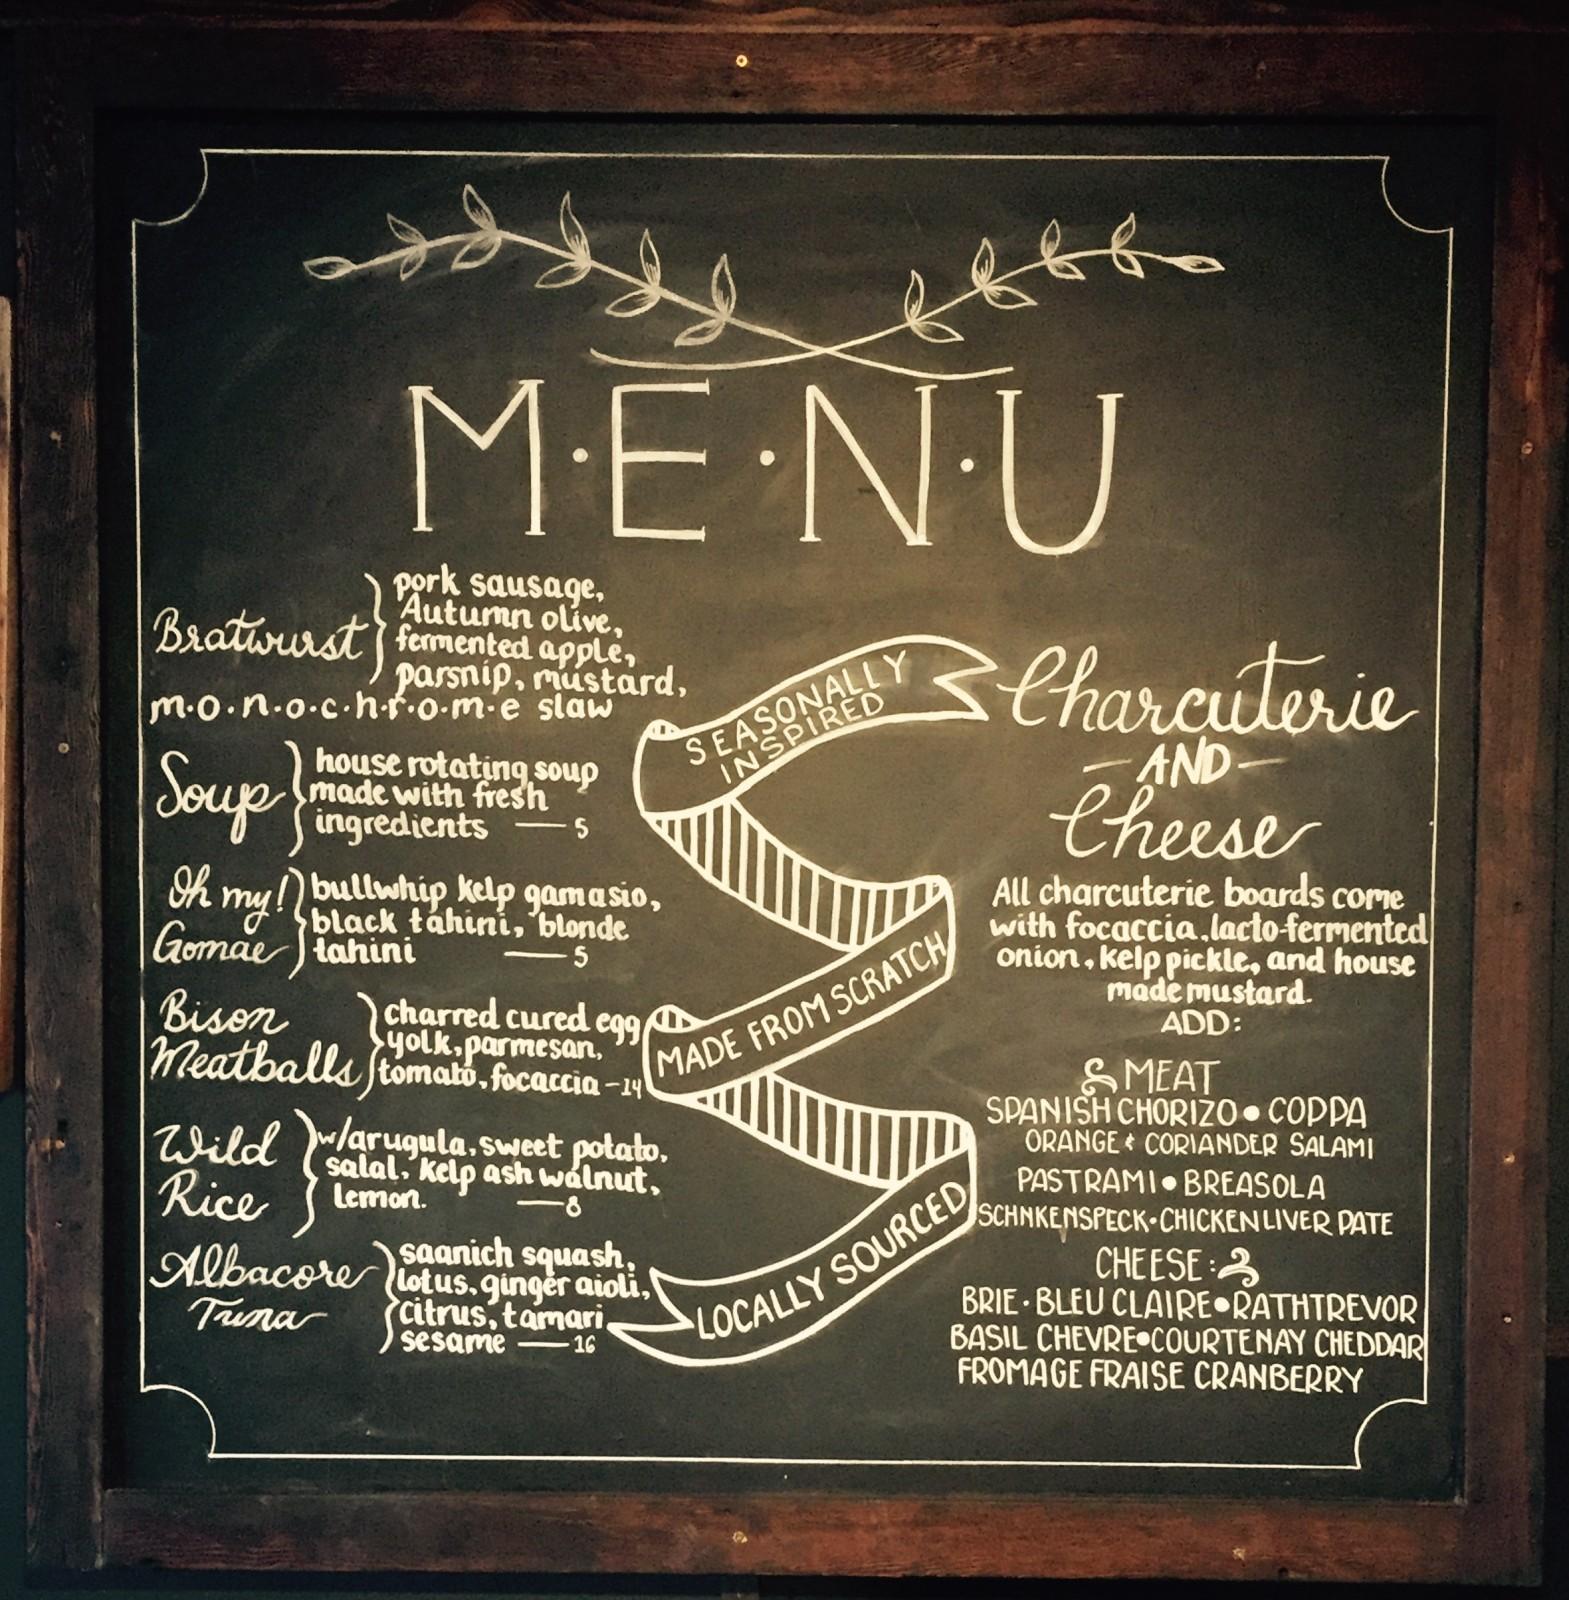 M·E·N·U
Bratwurst
pork sausage,
Autumn olive,
fermented apple,
parsnip, mustard,
m·o·n·o·c·h·r·o·m·e slaw
Soup
house rotating soup
made with fresh
ingredients — 5
Oh my!
Gomae
bullwhip kelp gamasio,
black tahini, blonde
tahini — 5
Bison
Meatballs
charred cured egg
yolk, parmesan,
tomato, focaccia - 14
Wild
Rice
w/arugula, sweet potato,
salal, kelp ash walnut,
lemon. — 8
Albacore
Tuna
saanich squash,
lotus, ginger aioli,
citrus, tamari
sesame — 16
SEASONALLY
INSPIRED
MADE FROM SCRATCH
LOCALLY SOURCED
Charcuterie
- AND -
Cheese
All charcuterie boards come
with focaccia, lacto-fermented
onion, kelp pickle, and house
made mustard.
ADD:
MEAT
SPANISH CHORIZO • COPPA
ORANGE & CORIANDER SALAMI
PASTRAMI • BREASOLA
SCHNKENSPECK • CHICKEN LIVER PATE
CHEESE:
BRIE · BLEU CLAIRE • RATHTREVOR
BASIL CHEVRE • COURTENAY CHEDDAR
FROMAGE FRAISE CRANBERRY